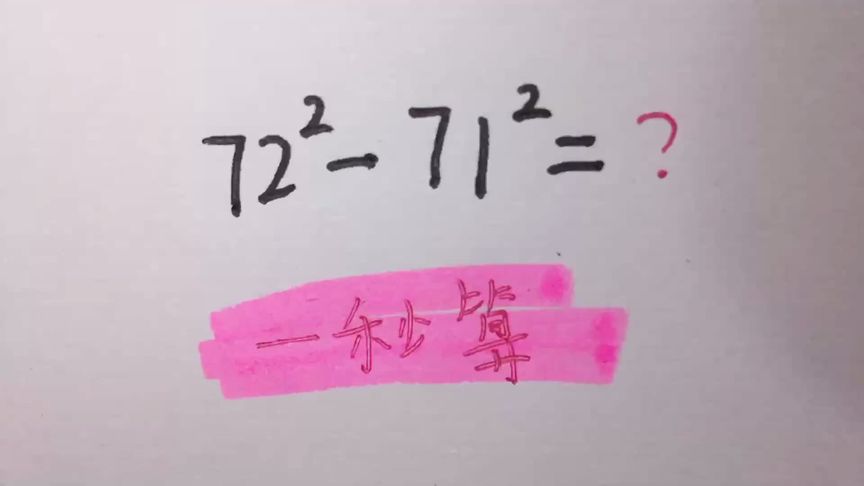 72² - 71² = ?
一秒算